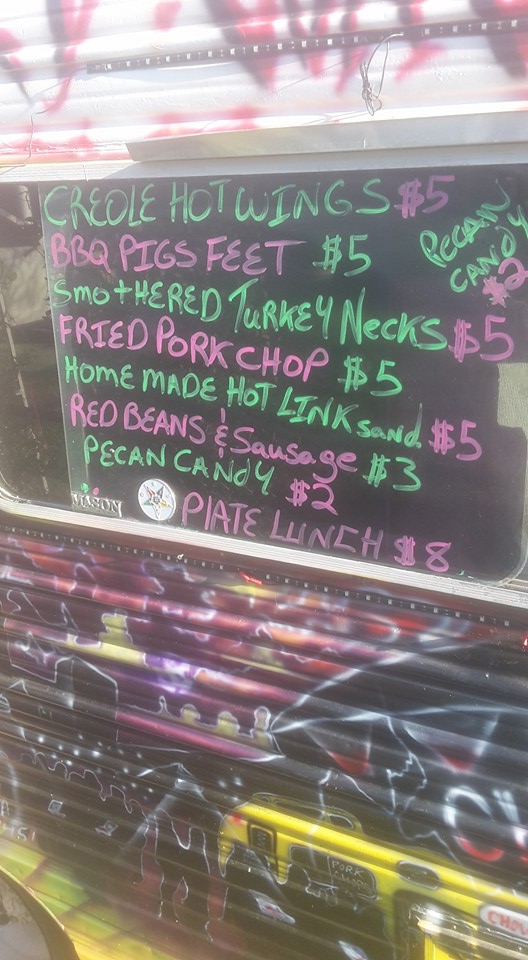 CREOLE HOT WINGS $5
PECAN
CANDY
$2
BBQ PIGS FEET $5
SmoTHERED TURKEY NECKS $5
FRIED PORK CHOP $5
HOME MADE HOT LINK sand. $5
RED BEANS & Sausage $3
PECAN CANdY $2
MASON
PLATE LUNCH $8
PORK